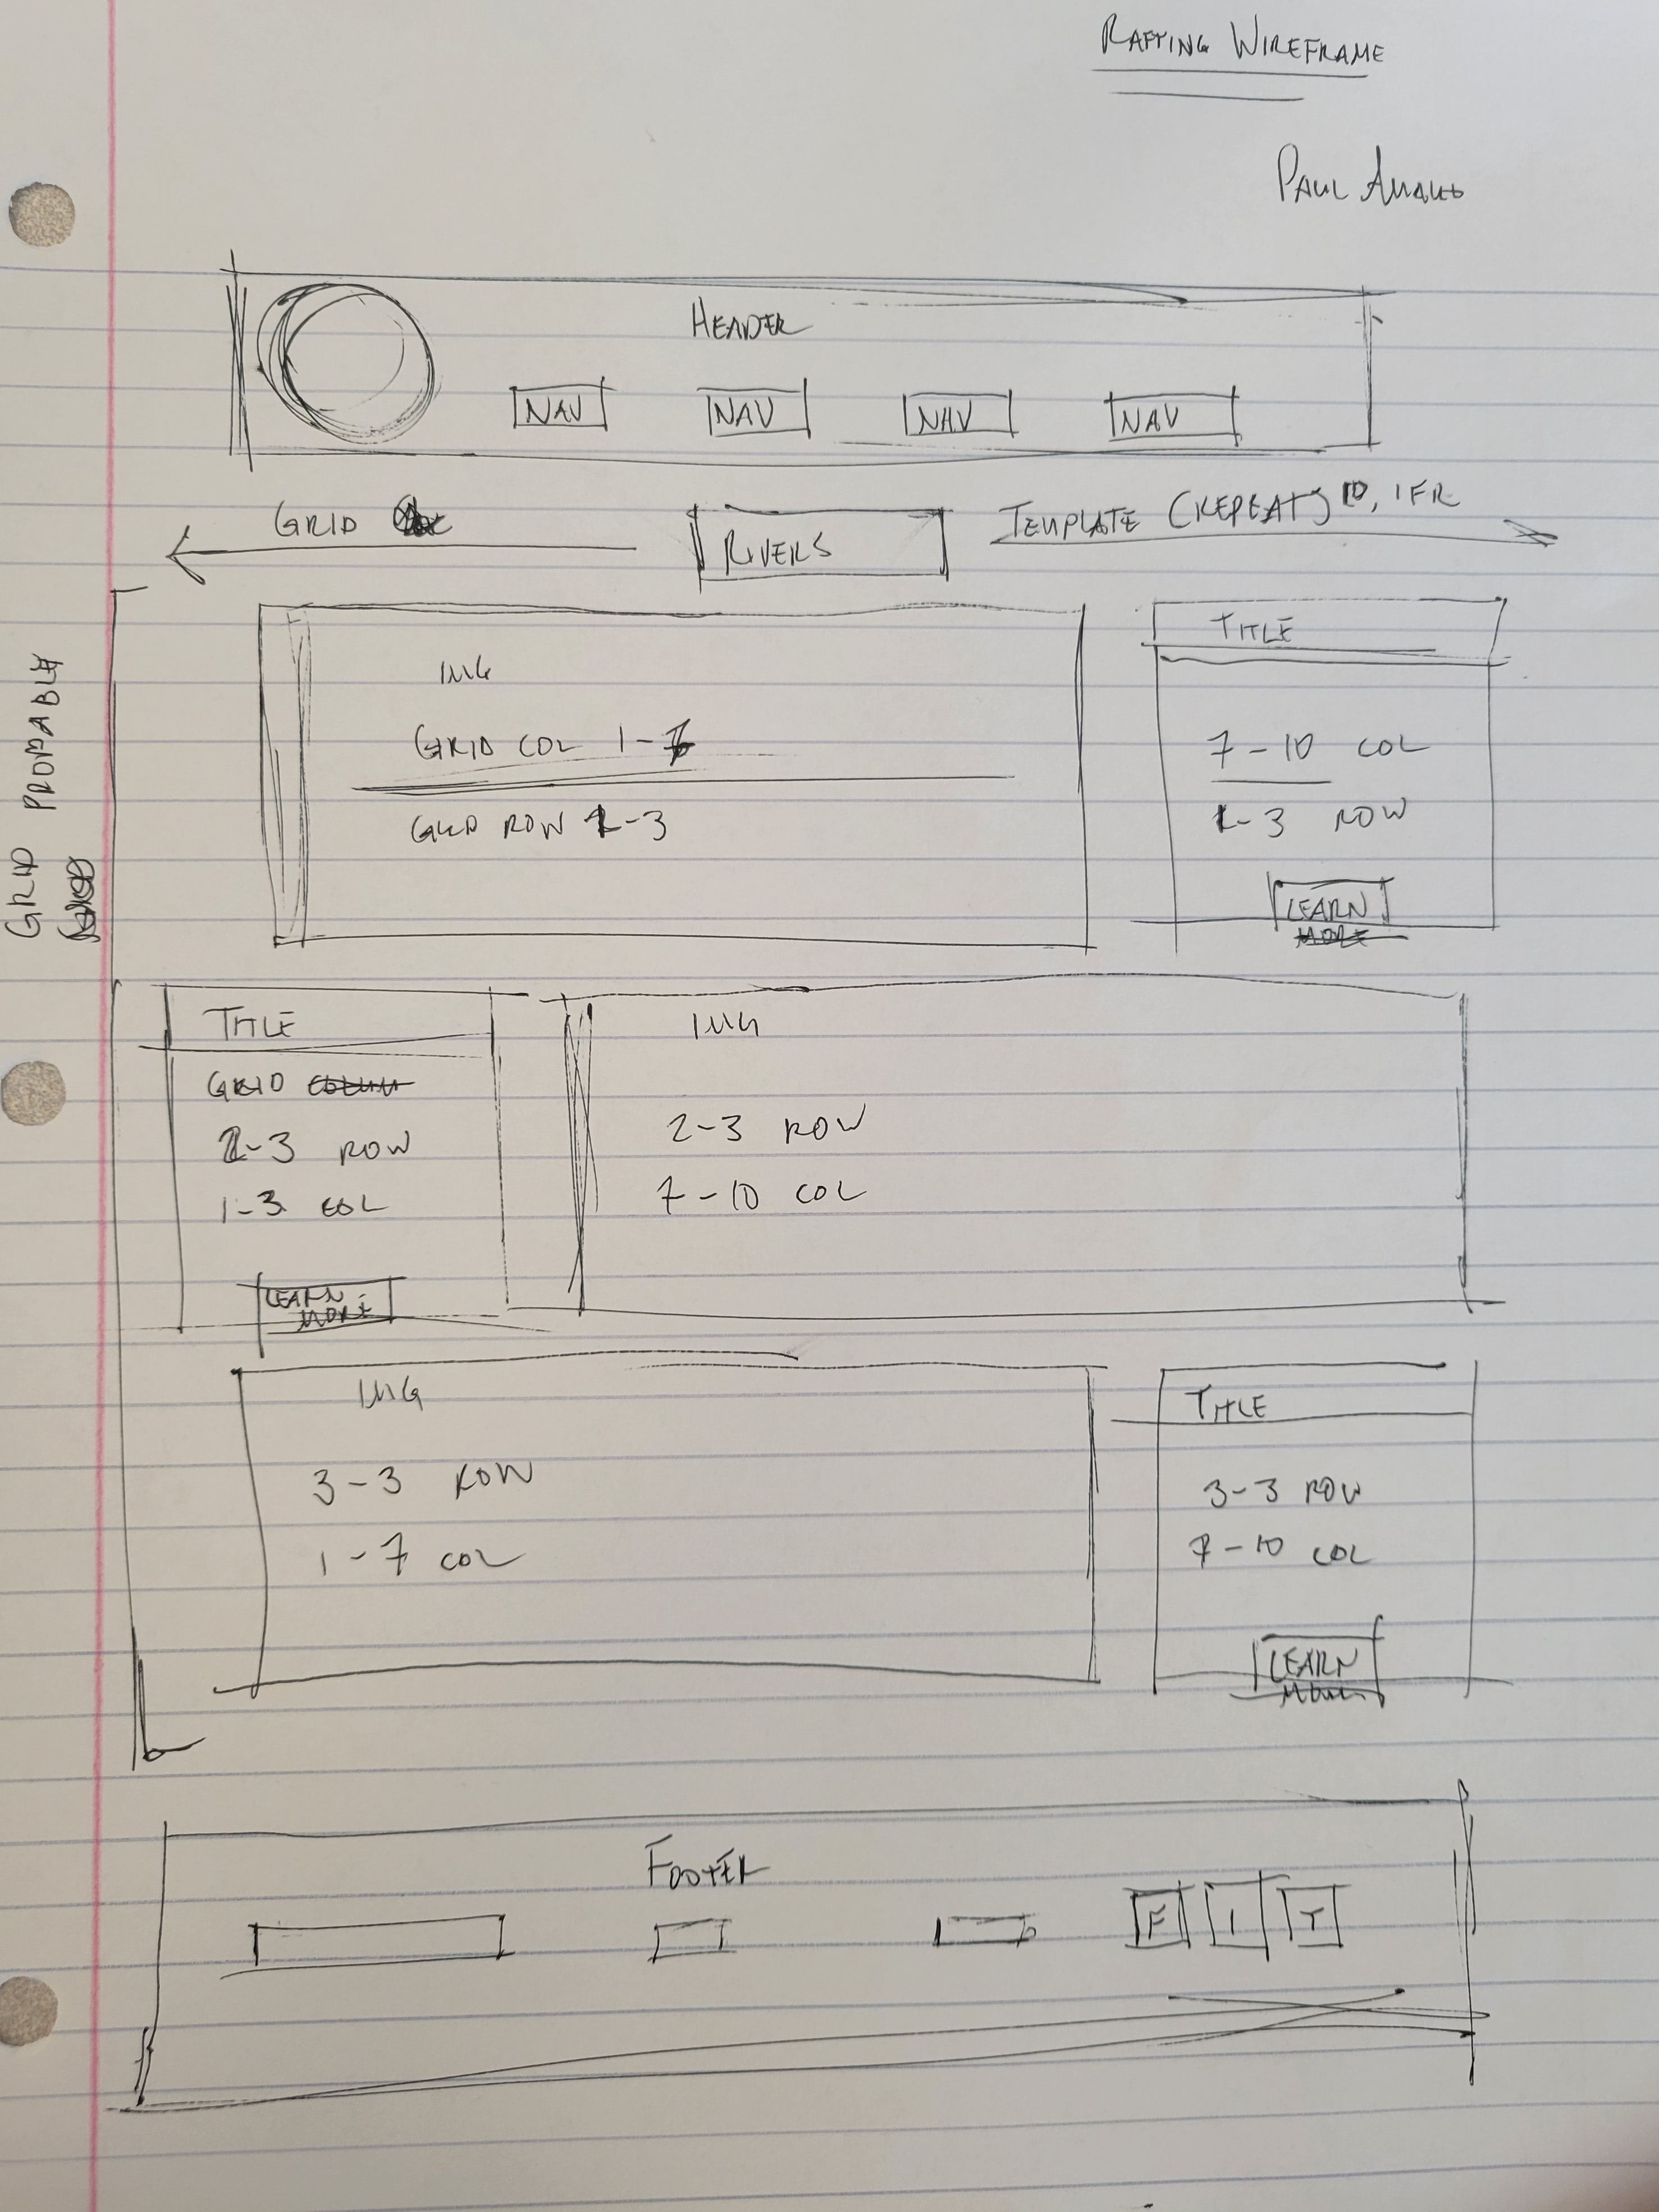 RAFTING WIREFRAME
PAUL
HEADER
NAV NAV NAV NAV
GRID
RIVERS
TEMPLATE (REPEAT) 10, 1FR
GRID PROBABLY
IMG
GRID COL 1-7
GRID ROW 1-3
TITLE
7-10 COL
1-3 ROW
LEARN
MORE
TITLE
GRID
2-3 ROW
1-3 COL
LEARN
MORE
IMG
2-3 ROW
7-10 COL
IMG
3-3 ROW
1-7 COL
TITLE
3-3 ROW
7-10 COL
LEARN
MORE
FOOTER
F I T